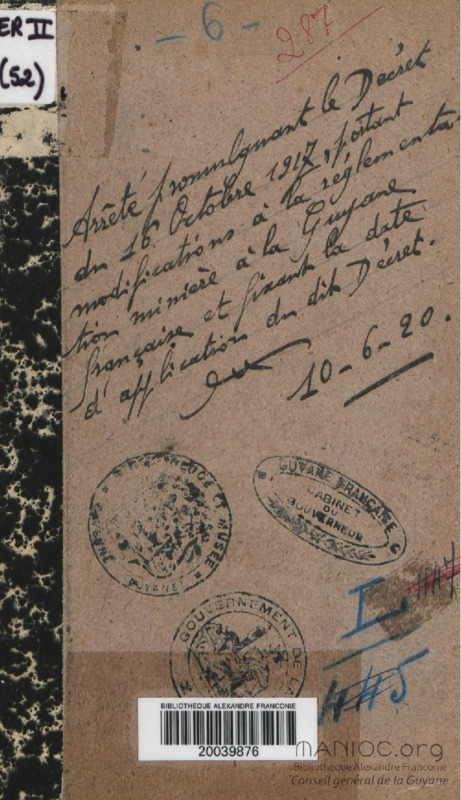 ER II
(52)
- 6 -
287
Arrêté promulguant le Décret
du 16 Octobre 1917, portant
modifications à la réglementa-
tion minière à la Guyane
française et fixant la date
d'application du dit Décret.
10-6-20.
BIBLIOTHEQUE ET MUSÉE
GUYANE
GUYANE FRANÇAISE
CABINET
DU
GOUVERNEUR
GOUVERNEMENT DE LA
I
BIBLIOTHEQUE ALEXANDRE FRANCONIE
20039876
MANIOC.org
Bibliothèque Alexandre Franconie
Conseil général de la Guyane